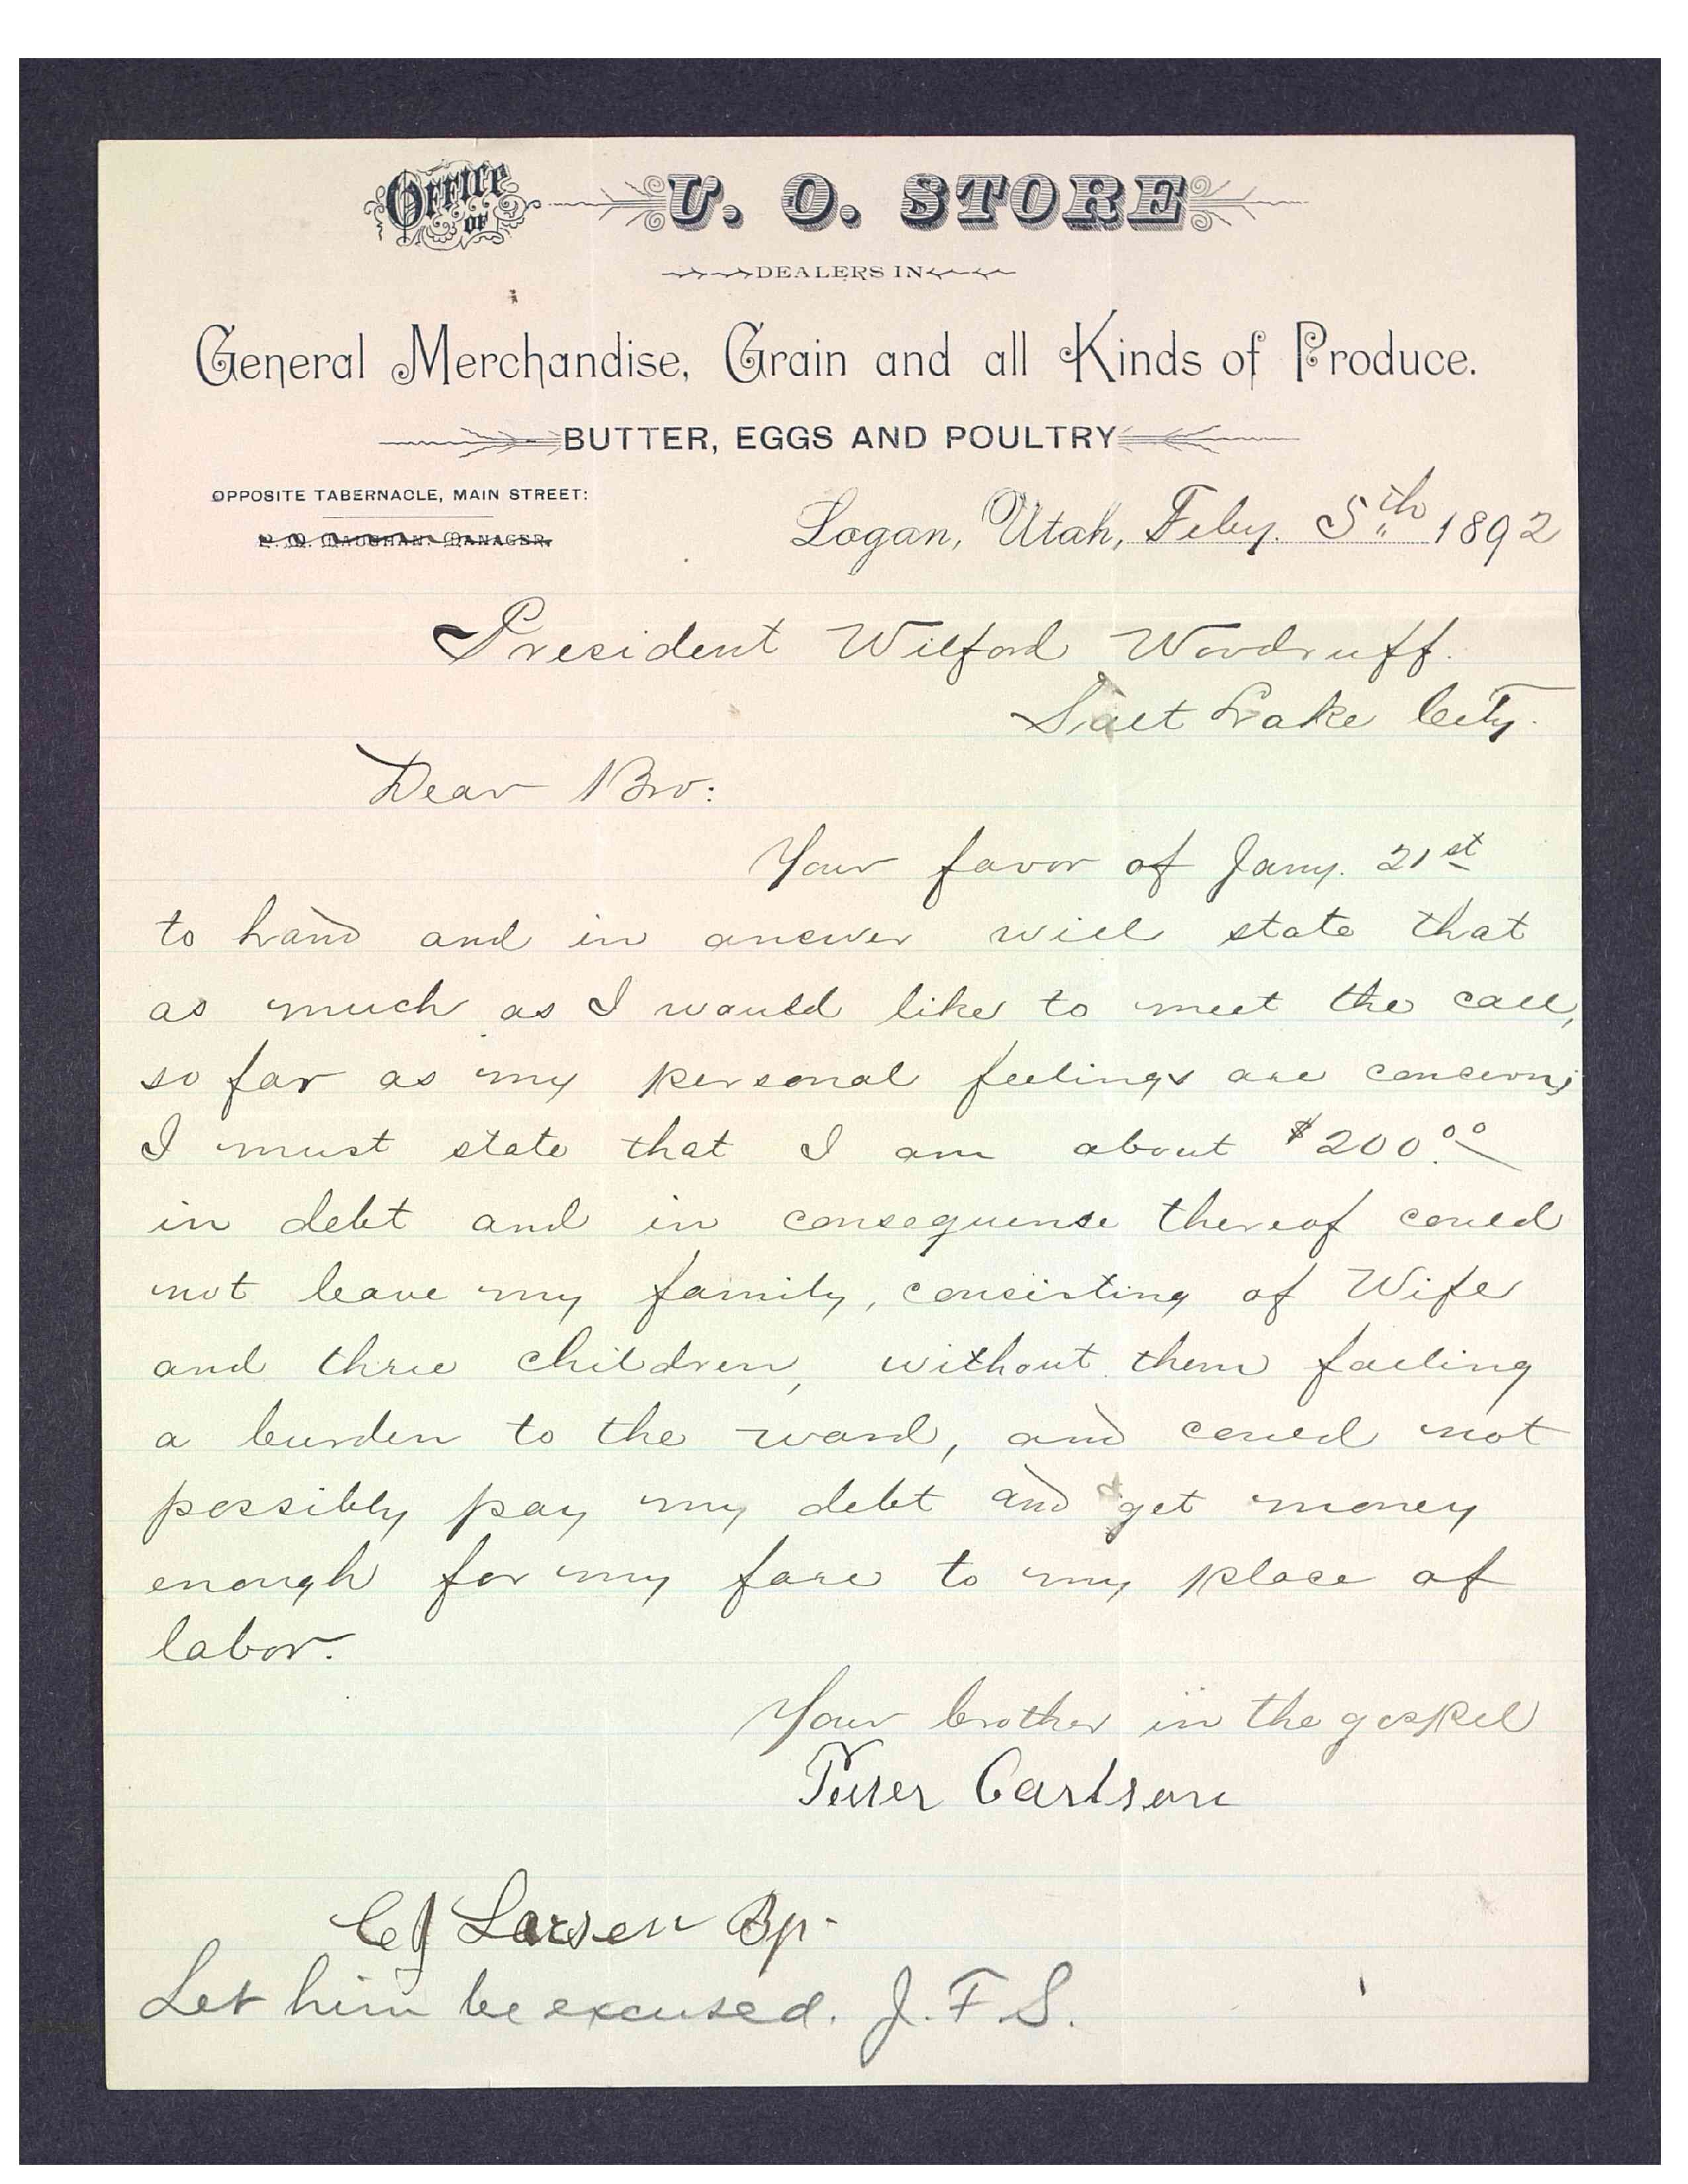 OFFICE OF U. O. STORE
DEALERS IN
General Merchandise, Grain and all Kinds of Produce.
BUTTER, EGGS AND POULTRY
OPPOSITE TABERNACLE, MAIN STREET:
MANAGER.
Logan, Utah, Feby. 5th 1892
President Wilford Woodruff.
Salt Lake City.
Dear Bro:
Your favor of Jany. 21st
to hand and in answer will state that
as much as I would like to meet the call,
so far as my personal feelings are concern;
I must state that I am about $200.00
in debt and in consequense thereof could
not leave my family, consisting of Wife
and three children, without them falling
a burden to the ward, and could not
possibly pay my debt and get money
enough for my fare to my place of
labor.
Your brother in the gospel
Carlson
C J Larsen Bp.
Let him be excused. J. F. S.